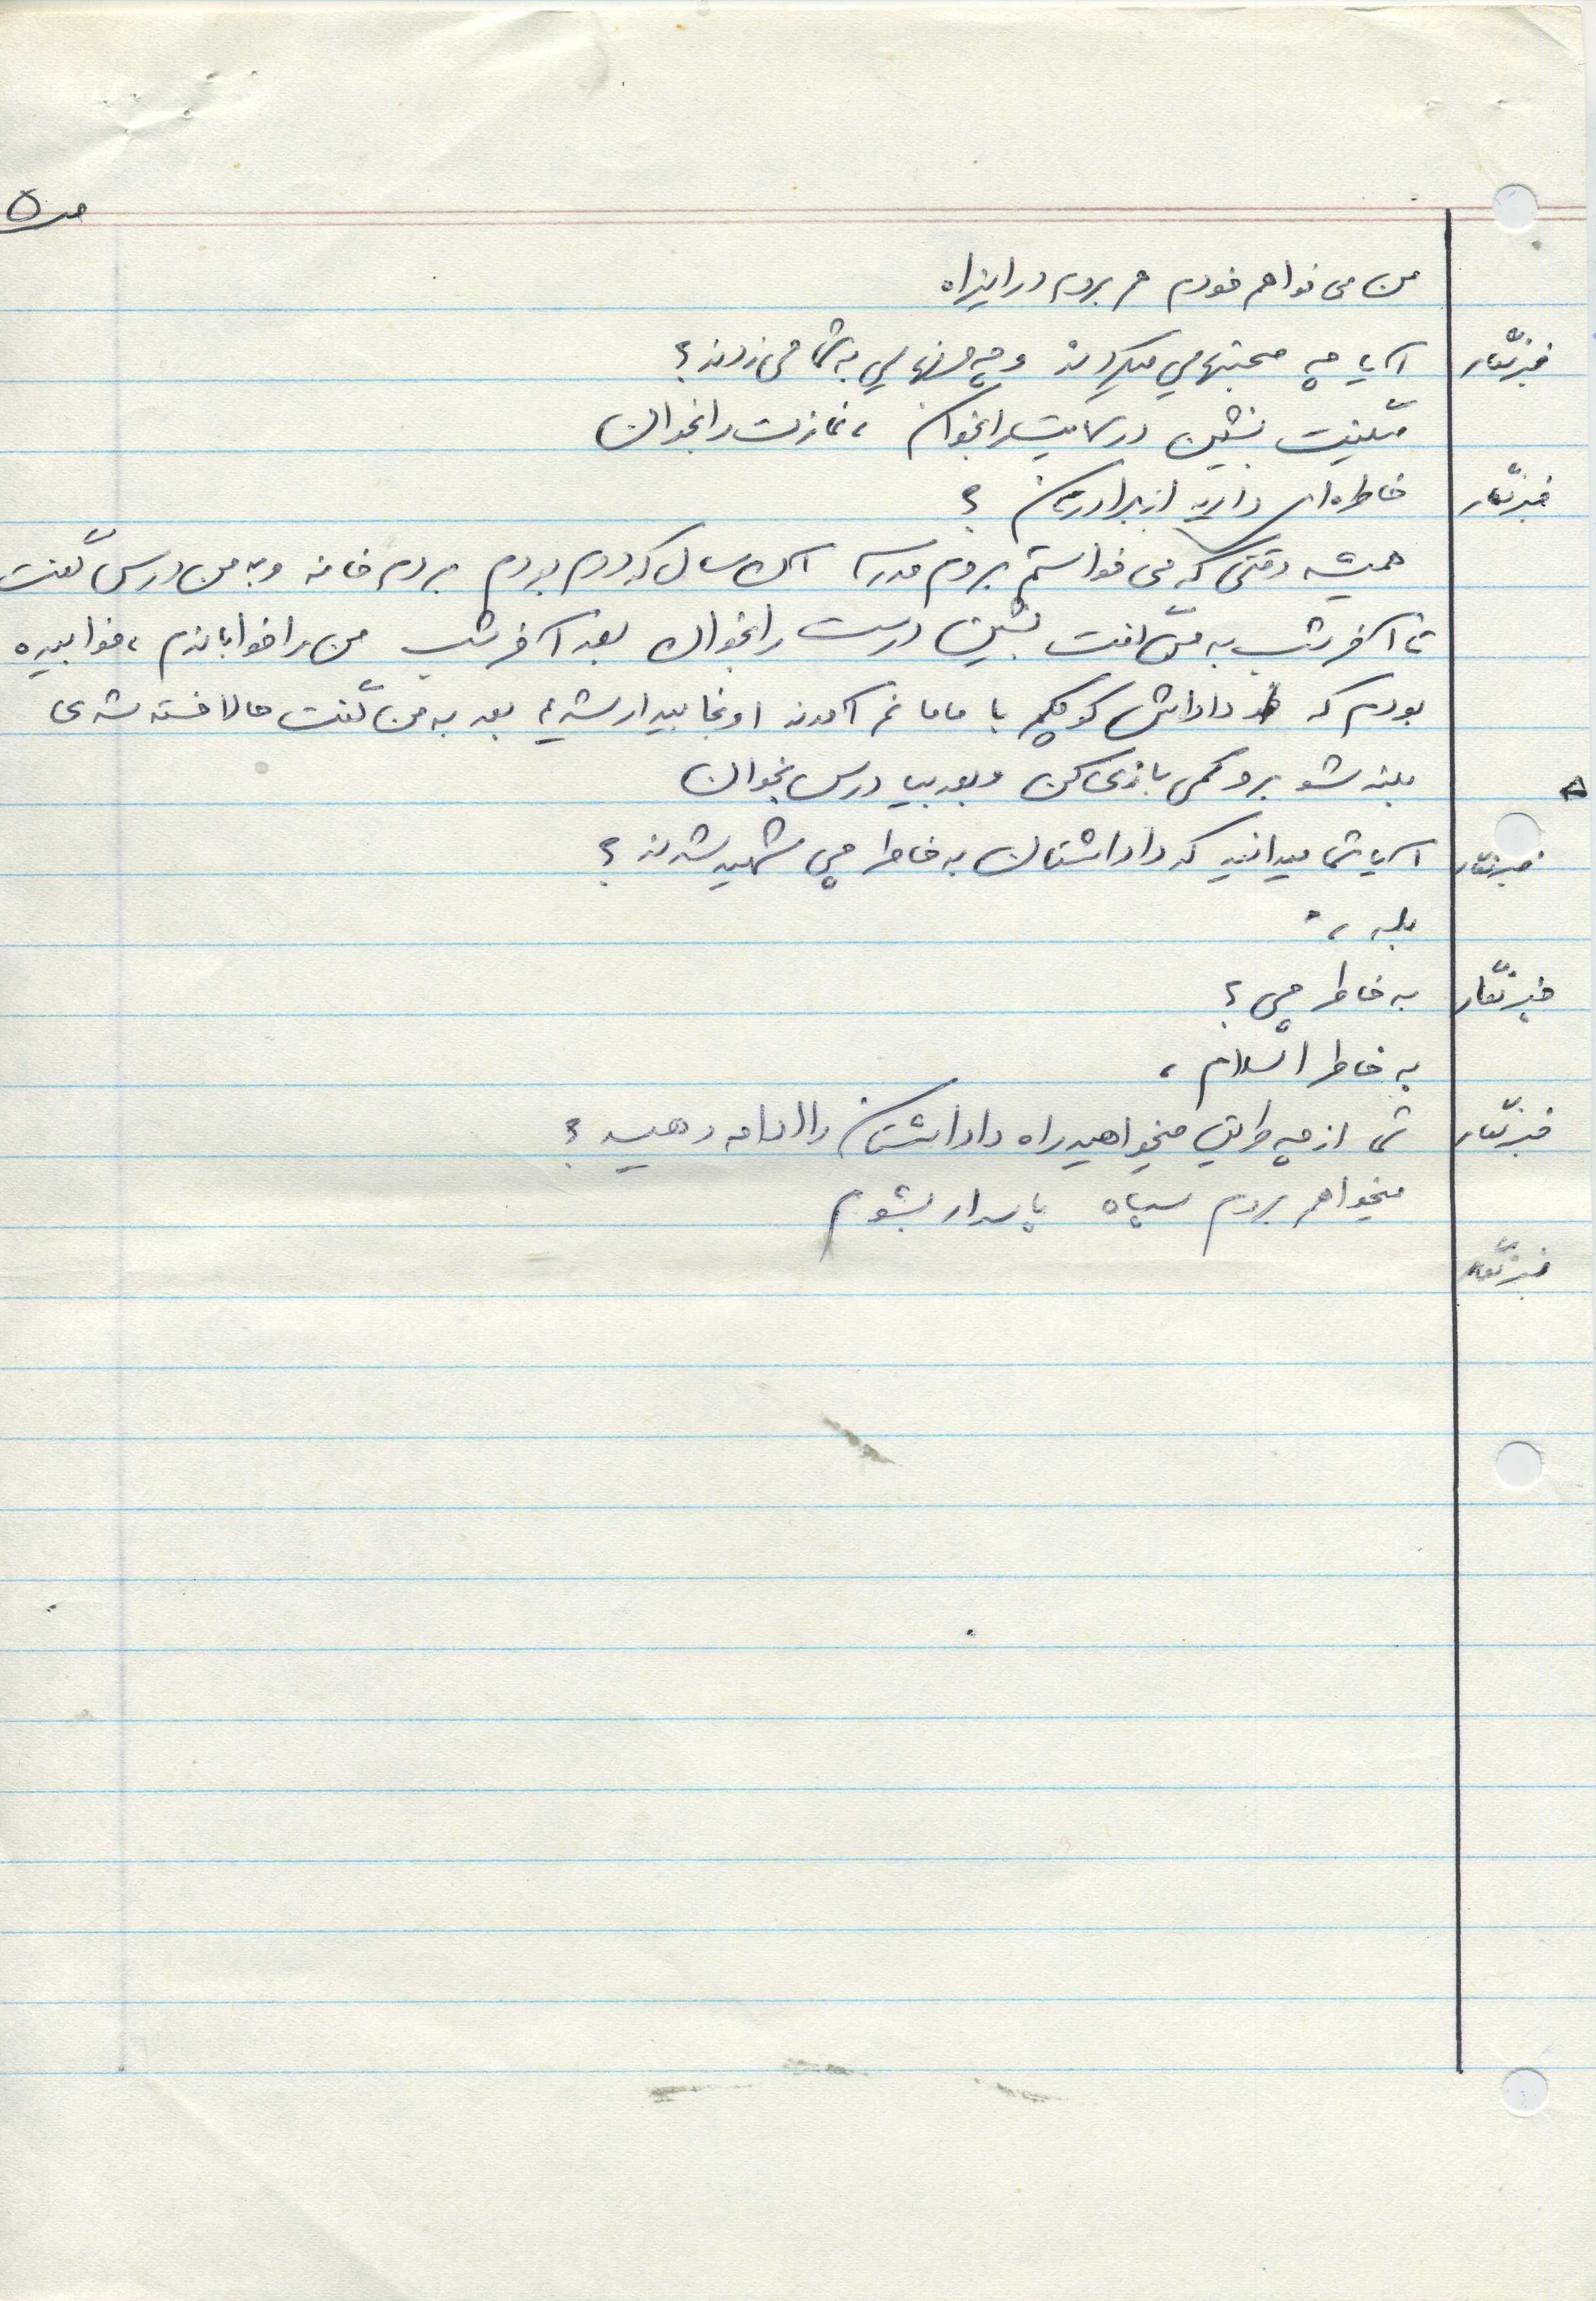 ص ۵
من می خواهم خودم هم بروم در این راه
خبرنگار آیا چه صحبتهایی میکردند و چه حرفهایی به شما می زدند؟
میگفت بنشین درسهایت را بخوان ، نمازت را بخوان
خبرنگار خاطره ای دارید از برادرتان ؟
همیشه وقتی که می خواستم بروم مدرسه اول سال که دوم بودم بردم خانه و به من درس گفت
تا آخر شب به من گفت بنشین درست را بخوان بعد آخر شب من را خواباندم ، خوابیده
بودم که داداش کوچکم با مامانم آمدند اونجا بیدار شدیم بعد به من گفت حالا خسته شدی
بلند شو برو کمی بازی کن و بعد بیا درس بخوان
خبرنگار آیا شما میدانید که داداشتان به خاطر چی شهید شدند ؟
بله ،
خبرنگار به خاطر چی ؟
به خاطر اسلام ،
خبرنگار شما از چه طریق میخواهید راه داداشتان را ادامه دهید ؟
میخواهم بروم سپاه پاسدار بشوم
خبرنگار